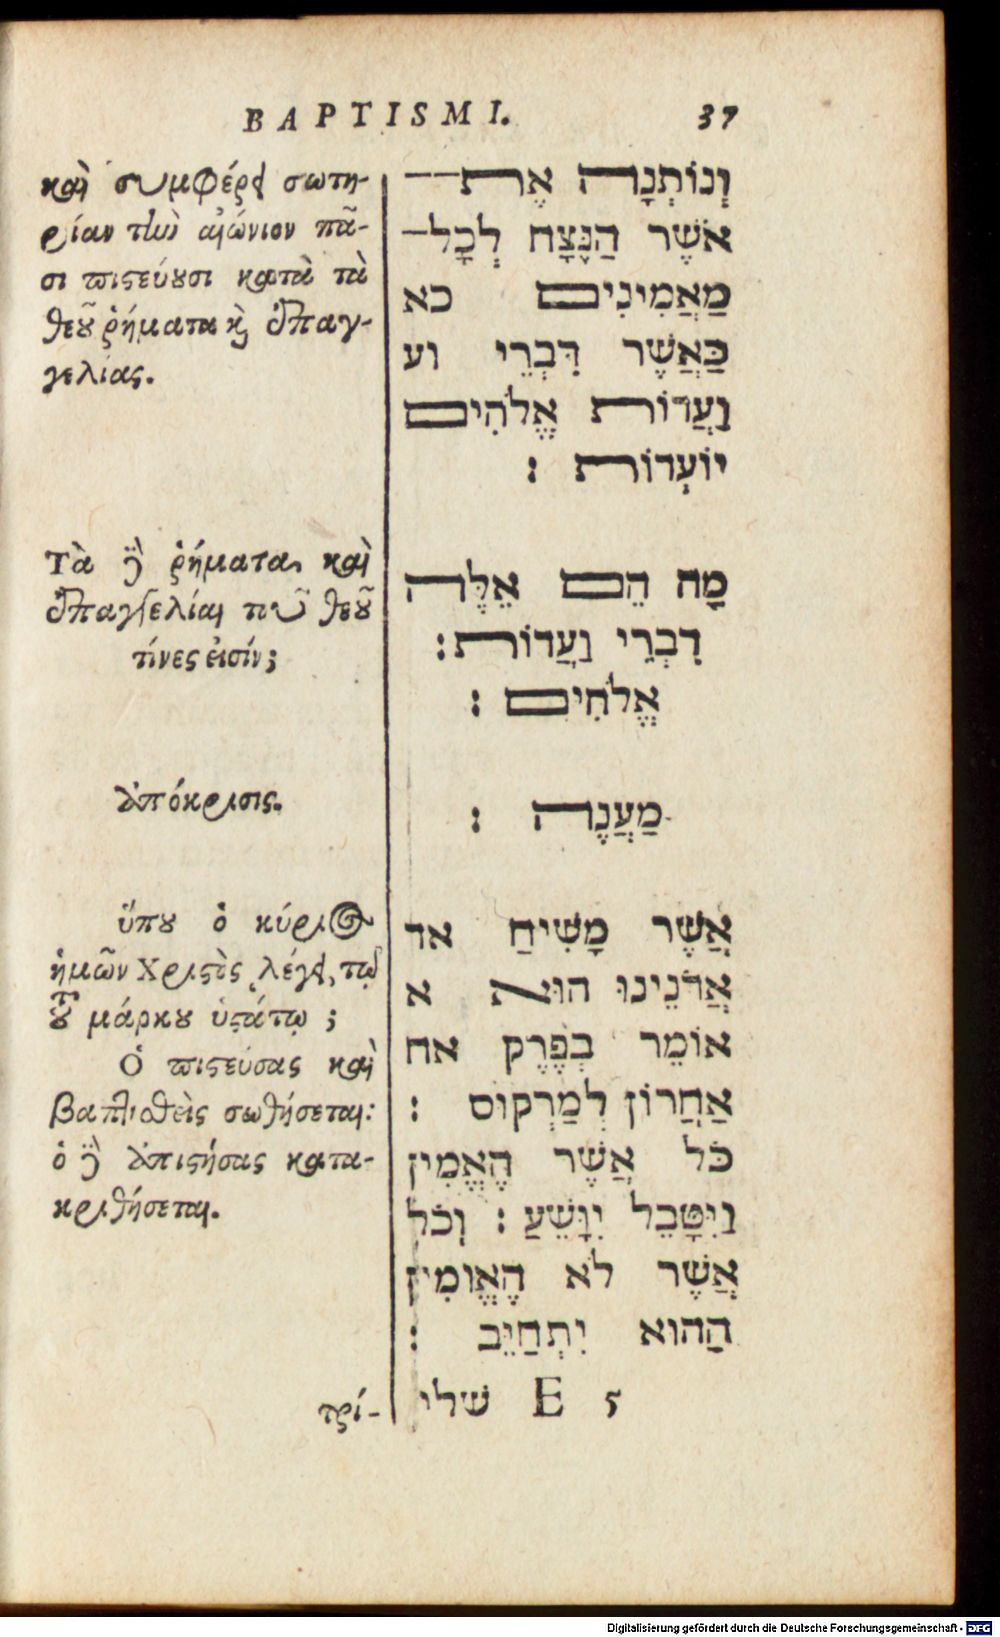 BAPTISMI. 37
καὶ συμφέρει σωτη-
ρίαν τὴν αἰώνιον πᾶ-
σι πιστεύουσι κατὰ τὰ
θεοῦ ῥήματα καὶ ἐπαγ-
γελίας.
Τὰ δὲ ῥήματα καὶ
ἐπαγγελίαι τοῦ θεοῦ
τίνες εἰσίν;
ἀπόκρισις.
ὅπου ὁ κύριος
ἡμῶν Χριστὸς λέγει, τῷ
τοῦ μάρκου ὑστάτῳ;
Ὁ πιστεύσας καὶ
βαπτισθεὶς σωθήσεται:
ὁ δὲ ἀπιστήσας κατα-
κριθήσεται.
τρί-
וְנוֹתְנָה אֶת
אֹשֶׁר הַנֶּצַח לְכָל
מַאֲמִינִים כא
כַּאֲשֶׁר דִּבְרֵי וע
וַעֲדוֹת אֱלֹהִים
יוֹעְדוֹת :
מָה הֵם אֵלֶּה
דִבְרֵי וַעֲדוֹת :
אֱלֹהִים :
מַעֲנֶה :
אֲשֶׁר מָשִׁיחַ אד
אֲדֹנֵינוּ הוּא א
אוֹמֵר בְּפֶרֶק אח
אַחֲרוֹן לְמַרְקוֹס :
כֹּל אֲשֶׁר הֶאֱמִין
וַיִּטָּבֵל יִוָּשֵׁעַ : וְכֹל
אֲשֶׁר לֹא הֶאֱומִין
הַהוּא יִתְחַיֵּב :
E 5 שלי
Digitalisierung gefördert durch die Deutsche Forschungsgemeinschaft - DFG